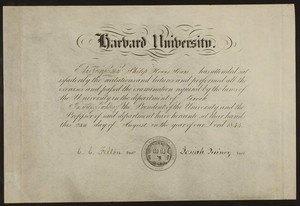 Harvard University.
Philip Howes Sears has attended and
repeatedly the recitations and lectures and performed all the
exercises and passed the examination required by the laws of
the University in the department of Greek
In testimony the President of the University and the
Professor of said department have hereunto set their hands
this day of August in the year of our Lord
C. C. Felton
Josiah Quincy